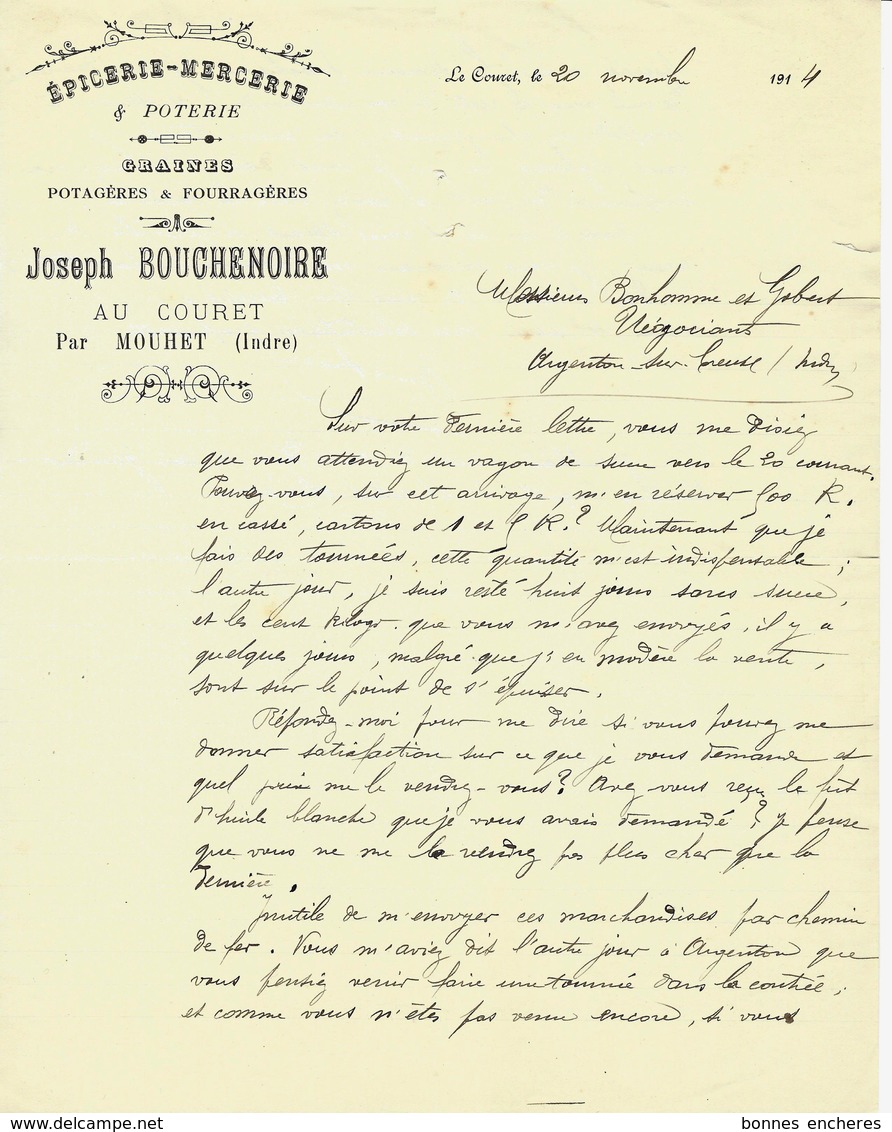 ÉPICERIE-MERCERIE
& POTERIE
GRAINES
POTAGÈRES & FOURRAGÈRES
Joseph BOUCHENOIRE
AU COURET
Par MOUHET (Indre)
Le Couret, le 20 novembre 1914
Messieurs Bonhomme et Gobert
Négociants
Argenton-sur-Creuse (Indre)
Sur votre dernière lettre, vous me disiez
que vous attendiez un vagon de sucre vers le 20 courant.
Pouvez-vous, sur cet arrivage, m'en réserver 500 K.
en cassé, cartons de 1 et 5 K.? Maintenant que je
fais des tournées, cette quantité m'est indispensable;
l'autre jour, je suis resté huit jours sans sucre,
et les cent kilogs. que vous m'avez envoyés, il y a
quelques jours, malgré que j'en modère la vente,
sont sur le point de s'épuiser.
Répondez-moi pour me dire si vous pouvez me
donner satisfaction sur ce que je vous demande et
quel prix me le vendrez-vous? Avez-vous reçu le fût
d'huile blanche que je vous avais demandé? je pense
que vous ne me la vendrez pas plus cher que la
dernière.
Inutile de m'envoyer ces marchandises par chemin
de fer. Vous m'aviez dit l'autre jour à Argenton que
vous pensiez venir faire une tournée dans la contrée;
et comme vous n'êtes pas venu encore, si vous
bonnes encheres